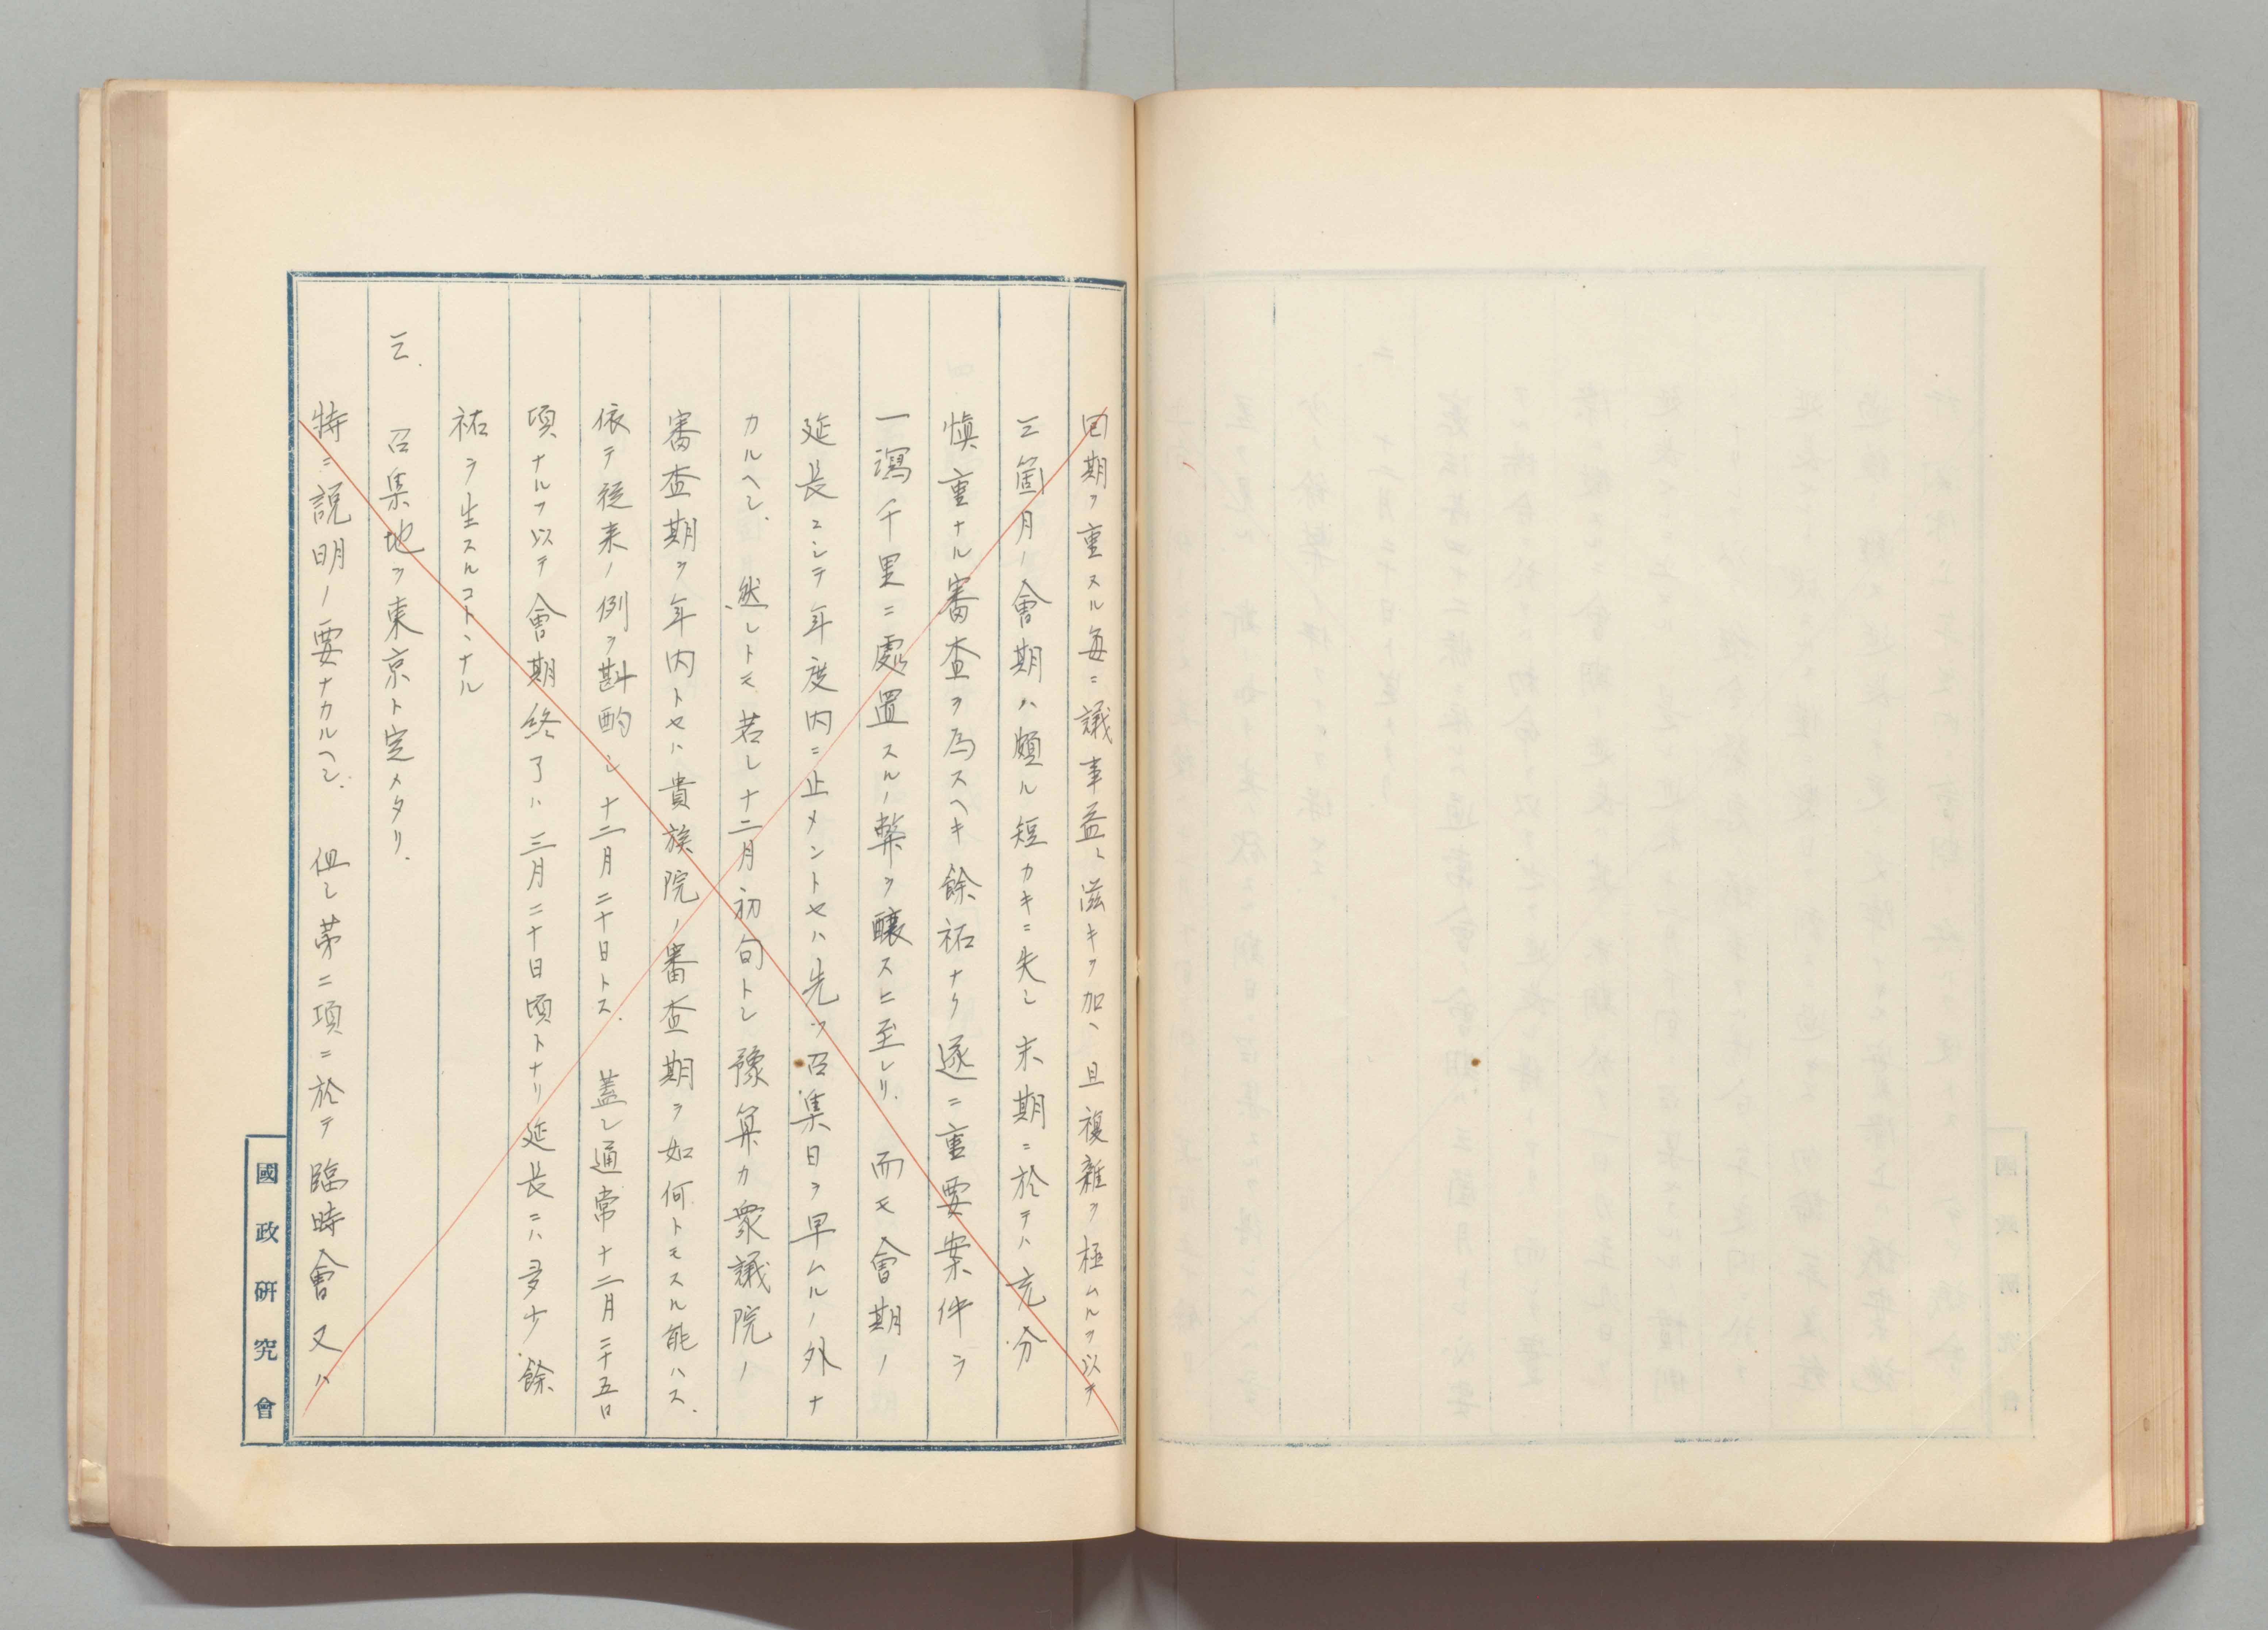 回期ヲ重スル毎ニ議事益〻滋キヲ加ヘ且複雜ヲ極ムルヲ以テ
三箇月ノ會期ハ頗ル短カキニ失シ末期ニ於テハ充分
愼重ナル審査ヲ為スヘキ餘祐ナク遂ニ重要案件ヲ
一瀉千里ニ處置スルノ弊ヲ釀スニ至レリ.而モ會期ノ
延長ヲシテ年度内ニ止メントセハ先ツ召集日ヲ早ムルノ外ナ
カルヘシ.然レトモ若シ十二月初旬トシ豫算カ衆議院ノ
審査期ヲ年内トセハ貴族院ノ審査期ヲ如何トモスル能ハス.
依テ從来ノ例ヲ斟酌シ十二月二十日トス.蓋シ通常十二月二十五日
頃ナルヲ以テ會期終了ハ三月二十日頃トナリ延長ニハ多少餘
祐ヲ生スルコトヽナル
三.召集地ヲ東京ト定メタリ.
特ニ説明ノ要ナカルヘシ.但シ第二項ニ於テ臨時會又ハ
國政硏究會